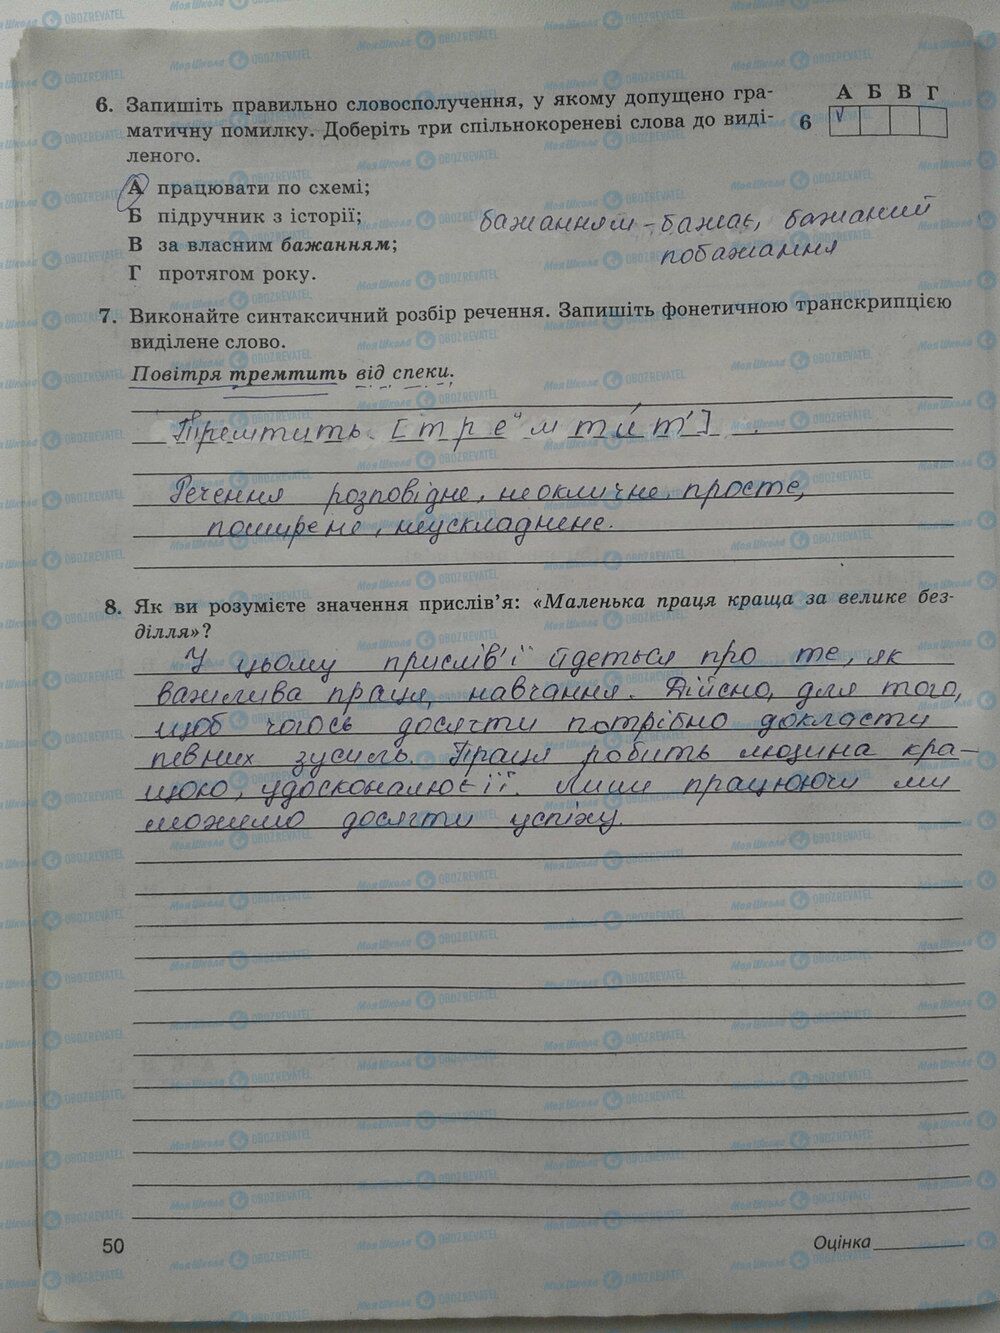 6. Запишіть правильно словосполучення, у якому допущено гра-
матичну помилку. Доберіть три спільнокореневі слова до виді-
леного.
А Б В Г
6 V
А працювати по схемі;
Б підручник з історії;
В за власним бажанням;
Г протягом року.
бажанням - бажає, бажаний
побажання
7. Виконайте синтаксичний розбір речення. Запишіть фонетичною транскрипцією
виділене слово.
Повітря тремтить від спеки.
Тремтить. [т р е и м т и́ т']
Речення розповідне, неокличне, просте,
поширене, неускладнене.
8. Як ви розумієте значення прислів'я: «Маленька праця краща за велике без-
ділля»?
У цьому прислів'ї йдеться про те, як
важлива праця, навчання. Дійсно, для того,
щоб чогось досягти потрібно докласти
певних зусиль. Праця робить людина кра-
щою, удосконалює її. Лиш працюючи ми
можемо досягти успіху.
50
Оцінка
МояШкола OBOZREVATEL